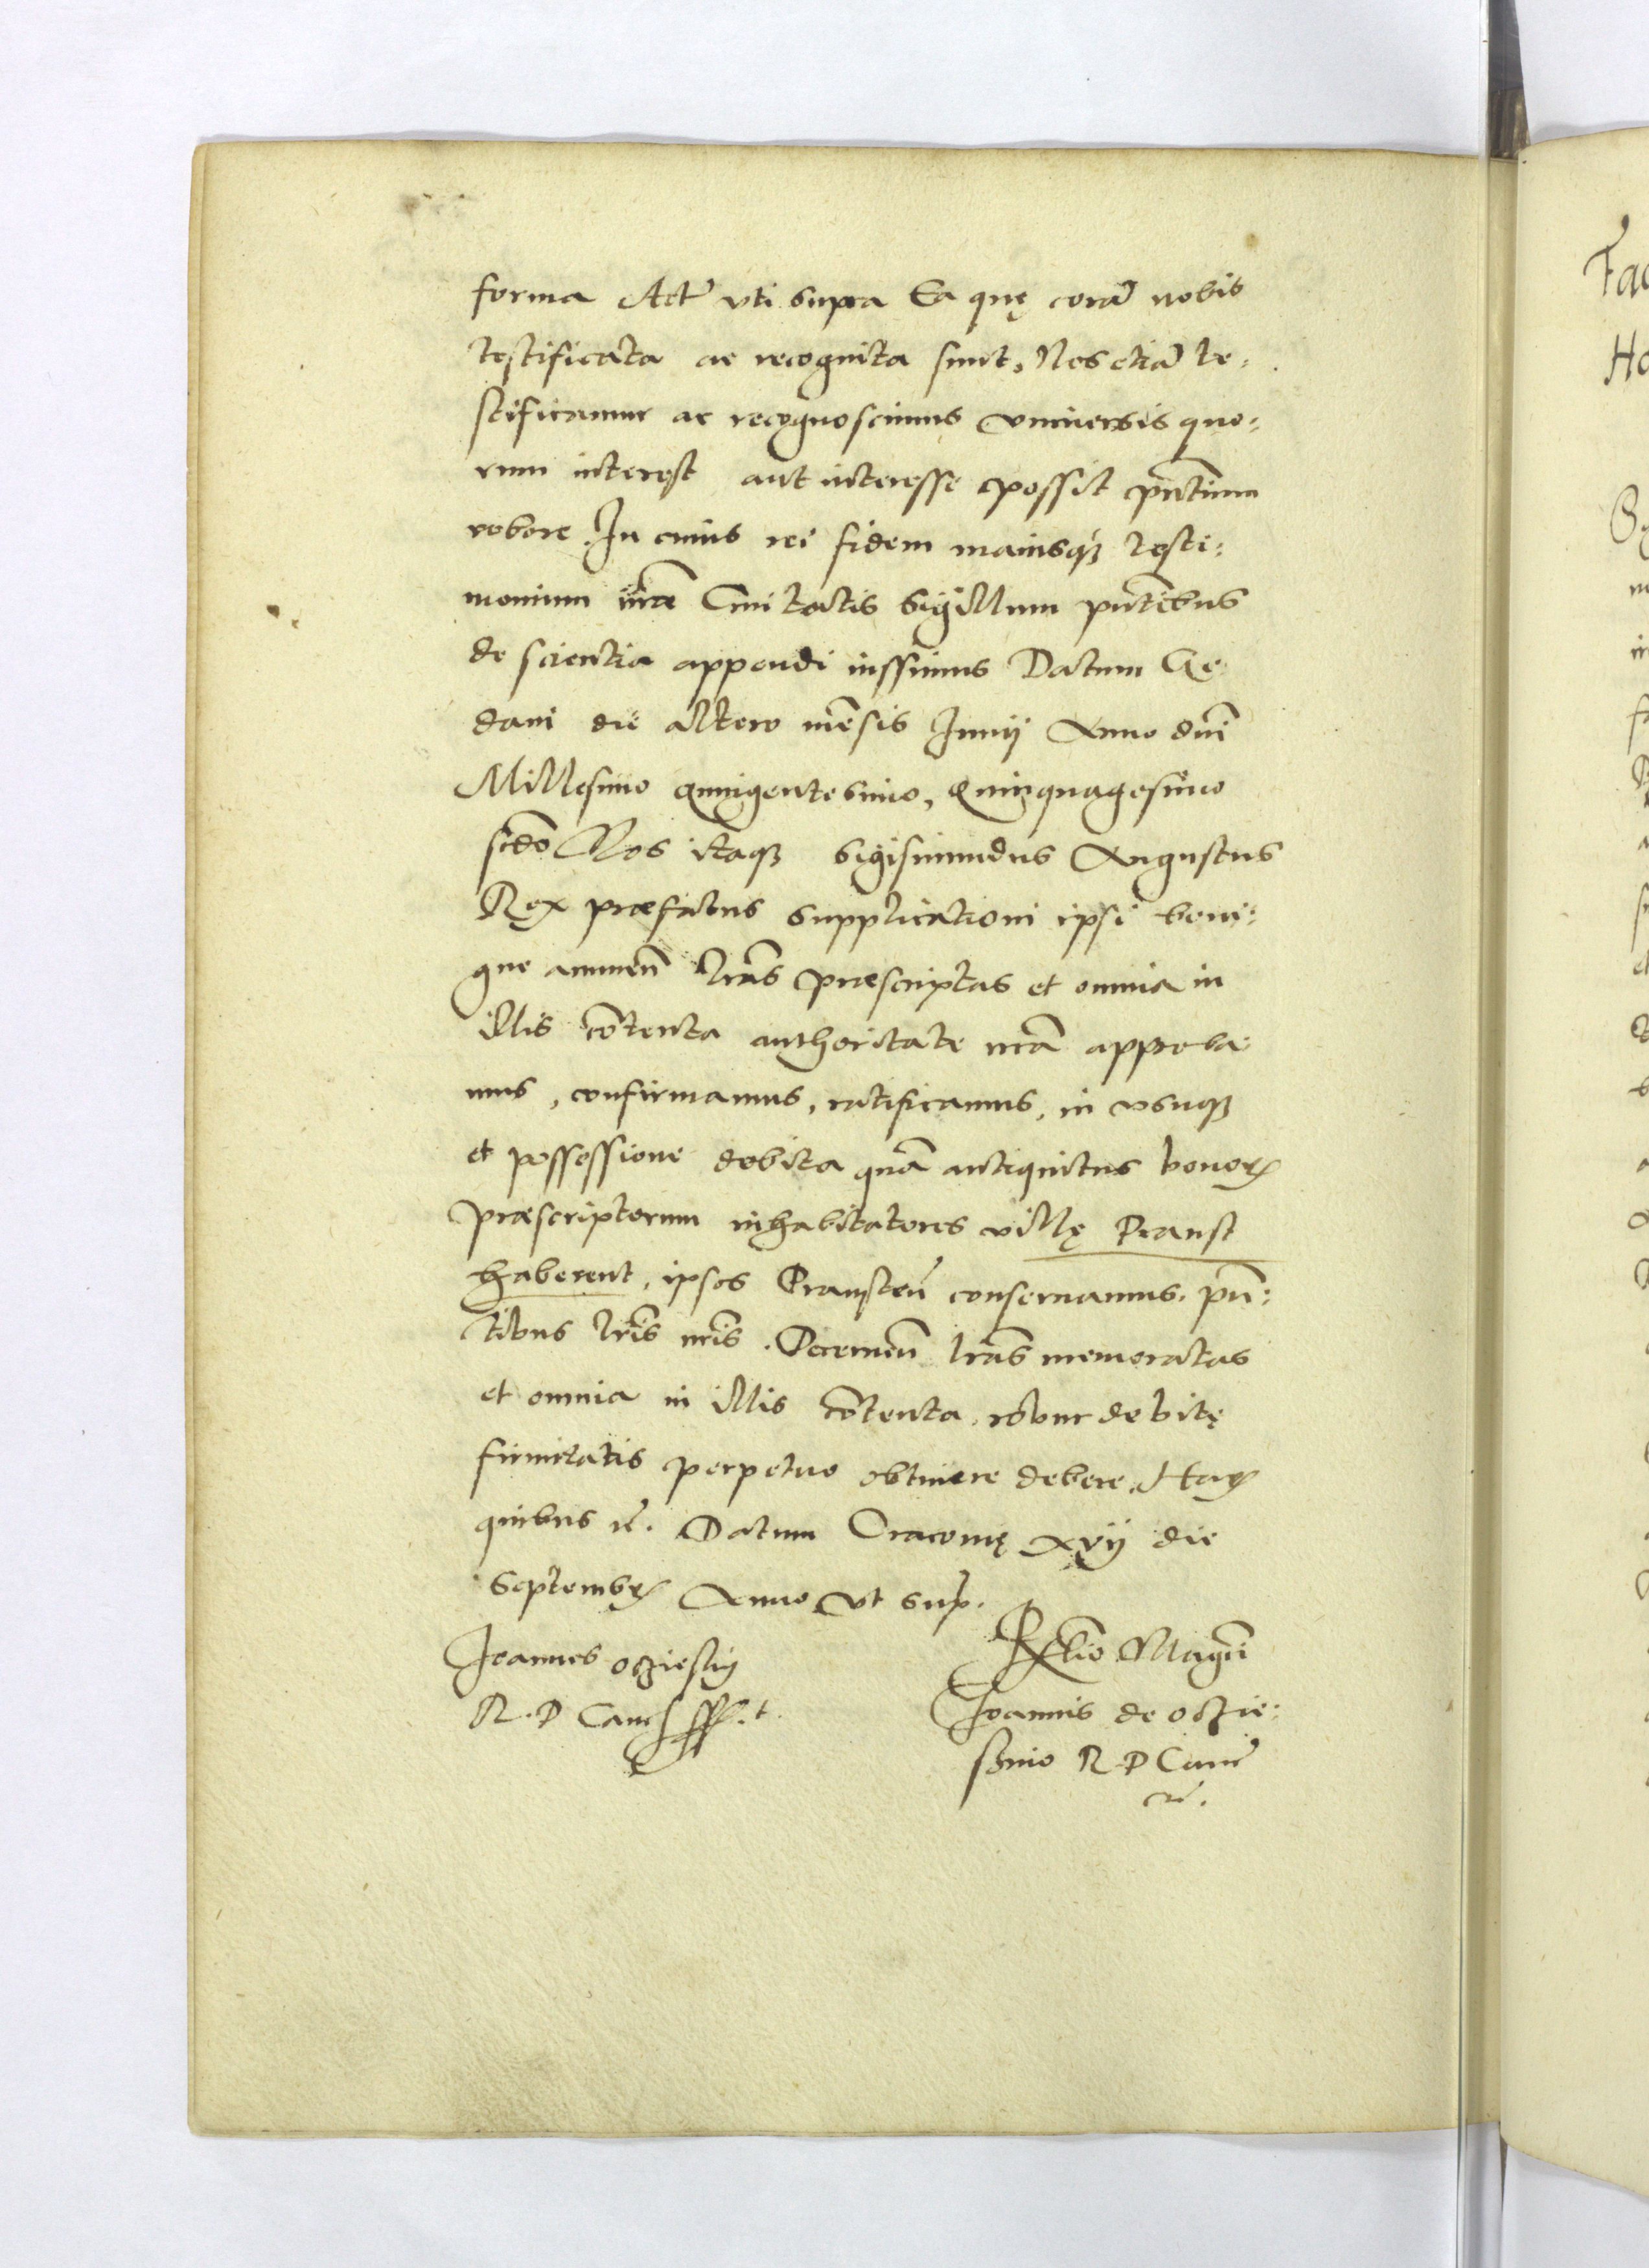 forma Actū vti supra Ea quę corā nobis
testificata ac recognita sunt, Nos etiā te=
stificamur ac recognoscimus vniuersis quo=
rum interest aut interesse possit pn̄tium
robore. In cuius rei fidem maiusq₃ testi=
monium nr̄ae Ciuitatis Sigillum pn̄tibus
de scientia appendi iussimus Datum Ge
dani die altero mēsis Iunij Anno dn̄i
Millesimo quingentesimo, Quinquagesimo
scdō Nos itaq₃ Sigismundus Augustus
Rex præfatus supplicationi ipsi beni=
gne annuen̄ lrās præscriptas et omnia in
illis cōtenta authoritate nrā approba
mus, confirmamus, ratificamus, in vsuq₃
et possessione debita quā antiquitus bonoꝝ
præscriptorum inhabitatores villę Pranst
haberent, ipsos Pransten̄ conseruamus. pn̄=
tibus lrīs nrīs. Decernen̄ lrās memoratas
et omnia in illis cōtenta, robur debitę
firmitatis perpetuo obtinere debere. Haꝝ
quibus rc̄. Datum Cracouię xvij die
Septembꝝ Anno vt sup.
Joannes oczieskij
R. P Canc̄ sst.
Rēlio Magc̄i
Joannis de oczie=
sznio R P Canc̄
rc̄.
Fac
Ho